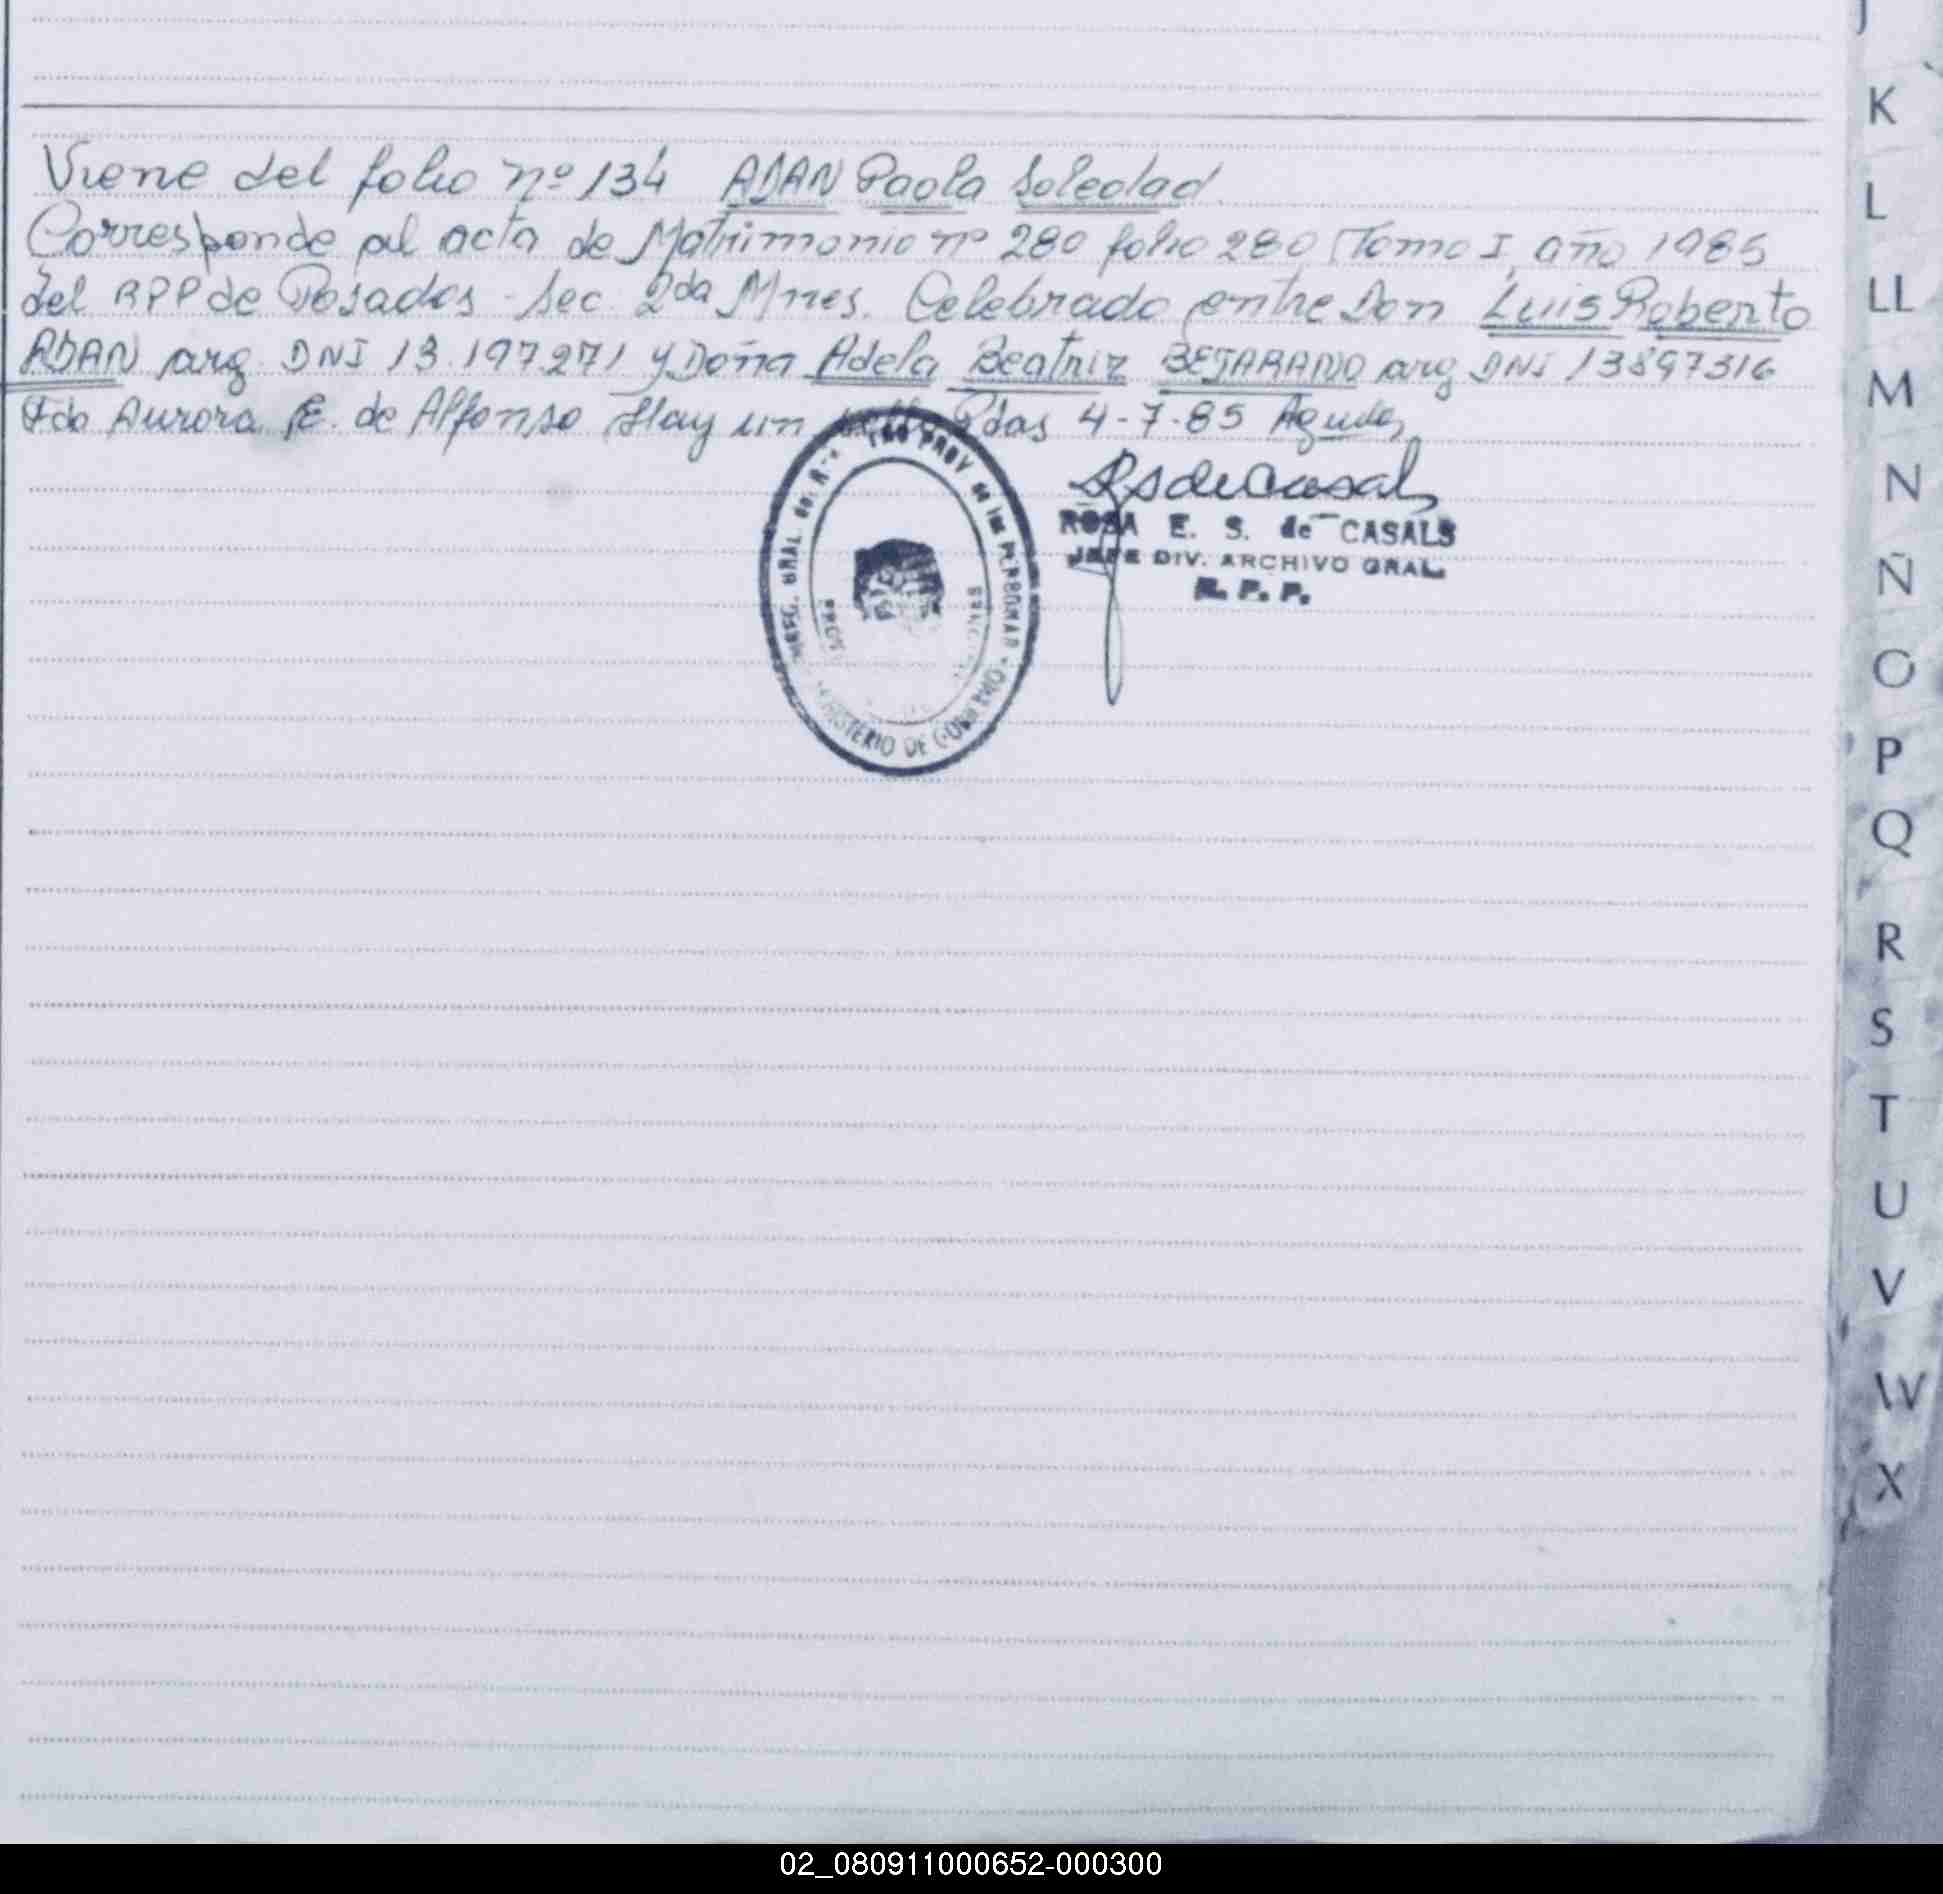 J
K
L
LL
M
N
Ñ
O
P
Q
R
S
T
U
V
W
X
Viene del folio nº 134 ADAN Paola Soledad.
Corresponde al acta de Matrimonio nº 280 folio 280 Tomo I, año 1985
del RPP de Posadas - Sec 2da Mnes. Celebrado entre Don Luis Roberto
ADAN arg. DNI 13.197.271 y Doña Adela Beatriz BEJARANO arg DNI 13897316
Fdo Aurora E. de Alfonso Hay un sello Pdas 4-7-85
ROSA E. S. de CASALS
JEFE DIV. ARCHIVO GRAL.
R. P. P.
GRAL. del PROV de las PERSONAS
MINISTERIO DE GOBIERNO
02_080911000652-000300